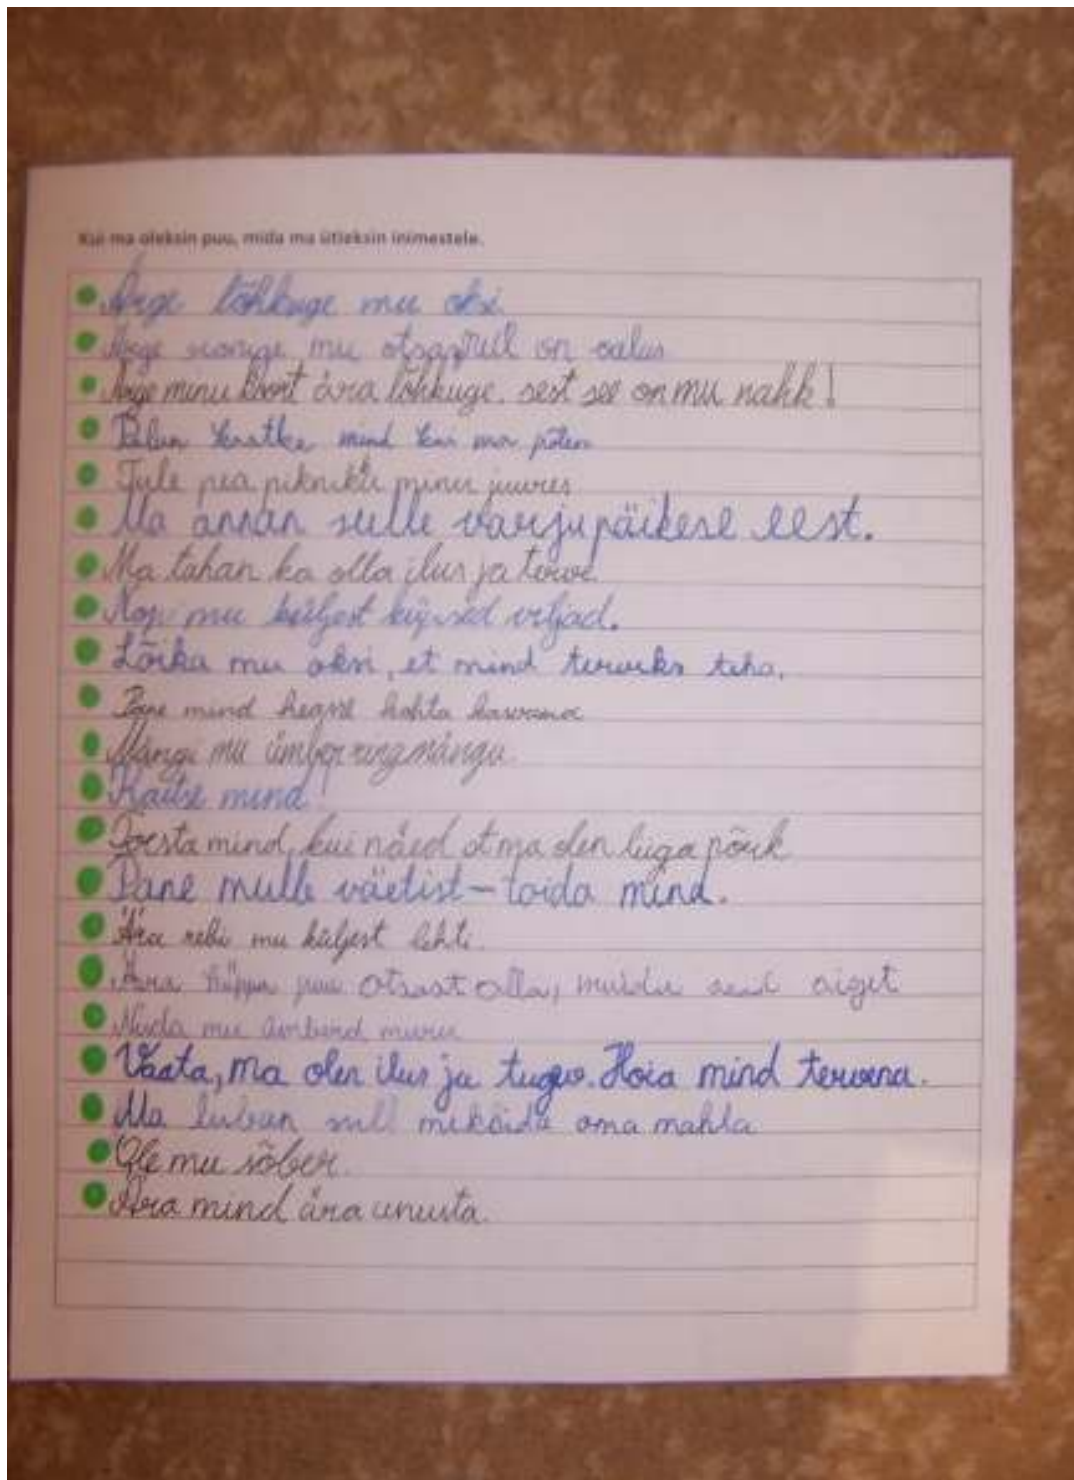 Kui ma oleksin puu, mida ma ütleksin inimestele.
Ärge lõhkuge mu oksi
Ärge ronige mu otsa, mul on valus
Ärge minu koort ära lõhkuge, sest see on mu nahk!
Palun kastke mind kui ma põlen
Tule pea piknikku minu juures
Ma annan sulle varju päikese eest.
Ma tahan ka olla ilus ja terve.
Nopi mu küljest küpsed viljad.
Lõika mu oksi, et mind terveks teha.
Pane mind heasse kohta kasvama
Mängi mu ümber ringmängu
Kaitse mind!
Toesta mind, kui näed et ma olen liiga põuk
Pane mulle väetist - toida mind.
Ära rebi mu küljest lehti.
Ära hüppa puu otsast alla, muidu said aiget
Niida mu ümbert muru
Vaata, ma olen ilus ja tugev. Hoia mind tervena.
Ma luban sull oma mahla
Ole mu sõber.
Ära mind ära unusta.